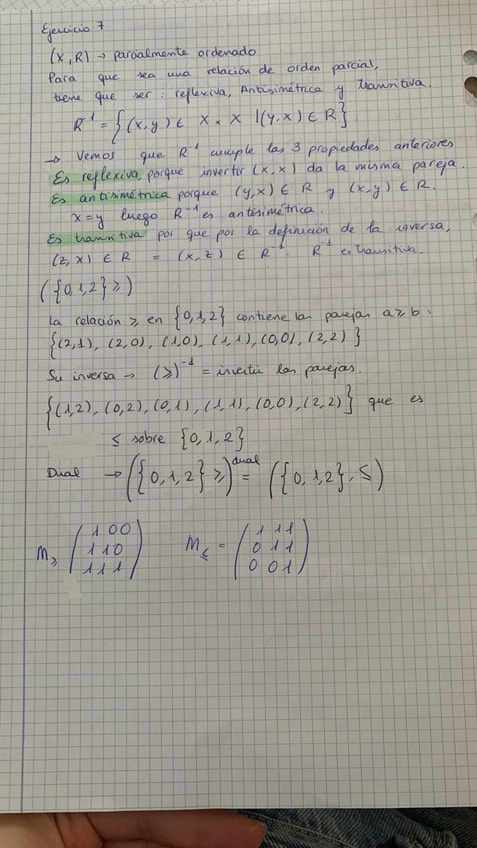 Ejercicio 7
(X, R) → parcialmente ordenado
Para que sea una relación de orden parcial,
tiene que ser: reflexiva, Antisimétrica y transitiva.
R⁻¹ = {(x, y) ∈ X × X | (y, x) ∈ R}
→ Vemos que R⁻¹ cumple las 3 propiedades anteriores
Es reflexiva, porque invertir (x, x) da la misma pareja.
Es antisimétrica porque (y, x) ∈ R y (x, y) ∈ R.
x = y luego R⁻¹ es antisimétrica.
Es transitiva por que por la definición de la inversa,
(z, x) ∈ R = (x, z) ∈ R⁻¹. R⁻¹ es transitiva.
({0, 1, 2} ≥)
La relación ≥ en {0, 1, 2} contiene las parejas a ≥ b:
{(2,1), (2,0), (1,0), (1,1), (0,0), (2,2)}
Su inversa → (≥)⁻¹ = invertir las parejas.
{(1,2), (0,2), (0,1), (1,1), (0,0), (2,2)} que es
≤ sobre {0, 1, 2}
Dual → ({0, 1, 2} ≥)ᵈᵘᵃˡ = ({0, 1, 2}, ≤)
M≥ (1 0 0
1 1 0
1 1 1)
M≤ = (1 1 1
0 1 1
0 0 1)